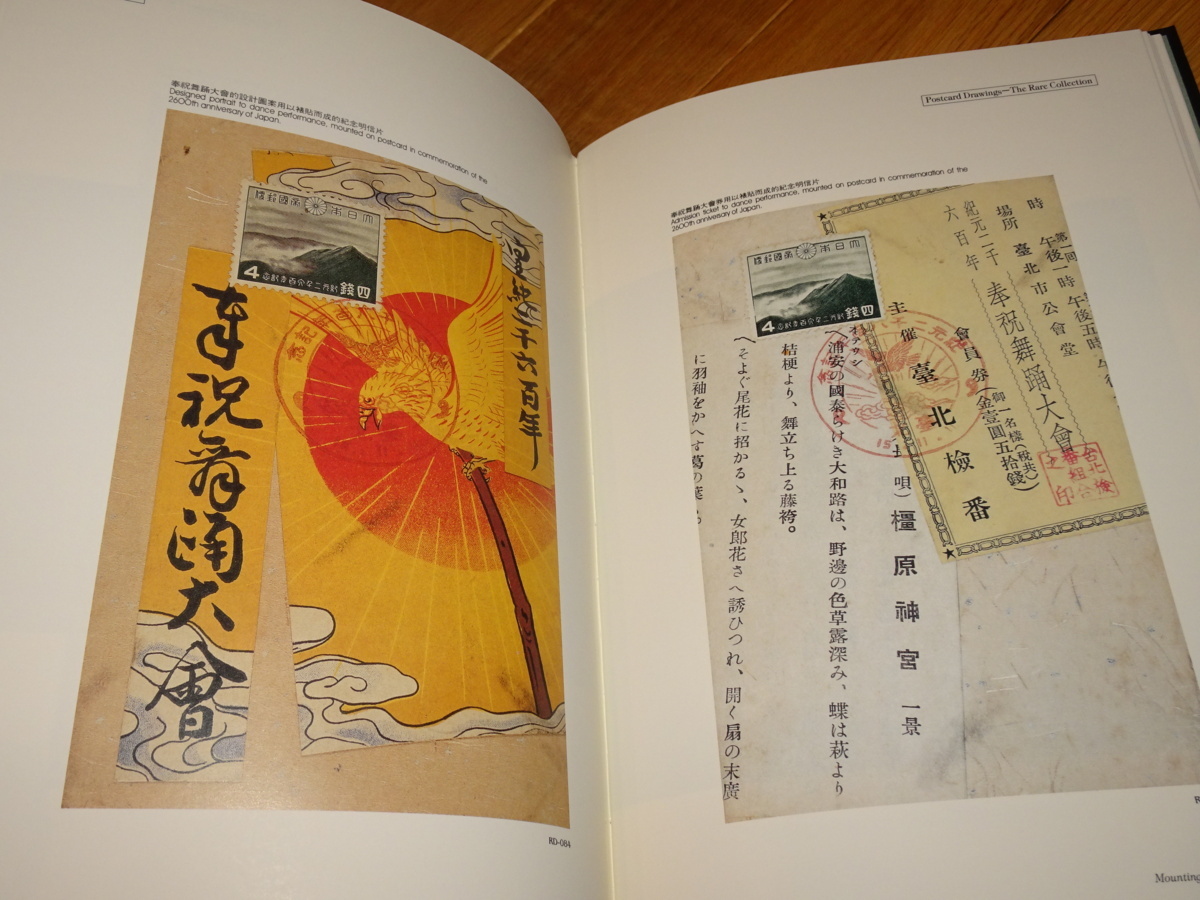 奉祝舞踊大會的設計圖案用以補貼而成的紀念明信片
Designed portrait to dance performance, mounted on postcard in commemoration of the
2600th anniversary of Japan.
大日本帝國郵便
4
四錢
二千六百年
奉祝舞踊大會
RD-084
Postcard Drawings—The Rare Collection
奉祝舞踊大會券用以補貼而成的紀念明信片
Admission ticket to dance performance, mounted on postcard in commemoration of the
2600th anniversary of Japan.
大日本帝國郵便
4
四錢
時
第一回
午後一時 午後五時
場所 臺北市公會堂
紀元二千
六百年
奉祝舞踊大會
會員券
御一名樣(稅共)
(金壹圓五拾錢)
主催 臺北檢番
唄)橿原神宮一景
浦安の國泰らけき大和路は、野邊の色草露深み、蝶は萩より
桔梗より、舞立ち上る藤袴。
へそよぐ尾花に招かるゝ、女郎花さへ誘ひつれ、開く扇の末廣
に羽袖をかへす葛の葉
Mounting